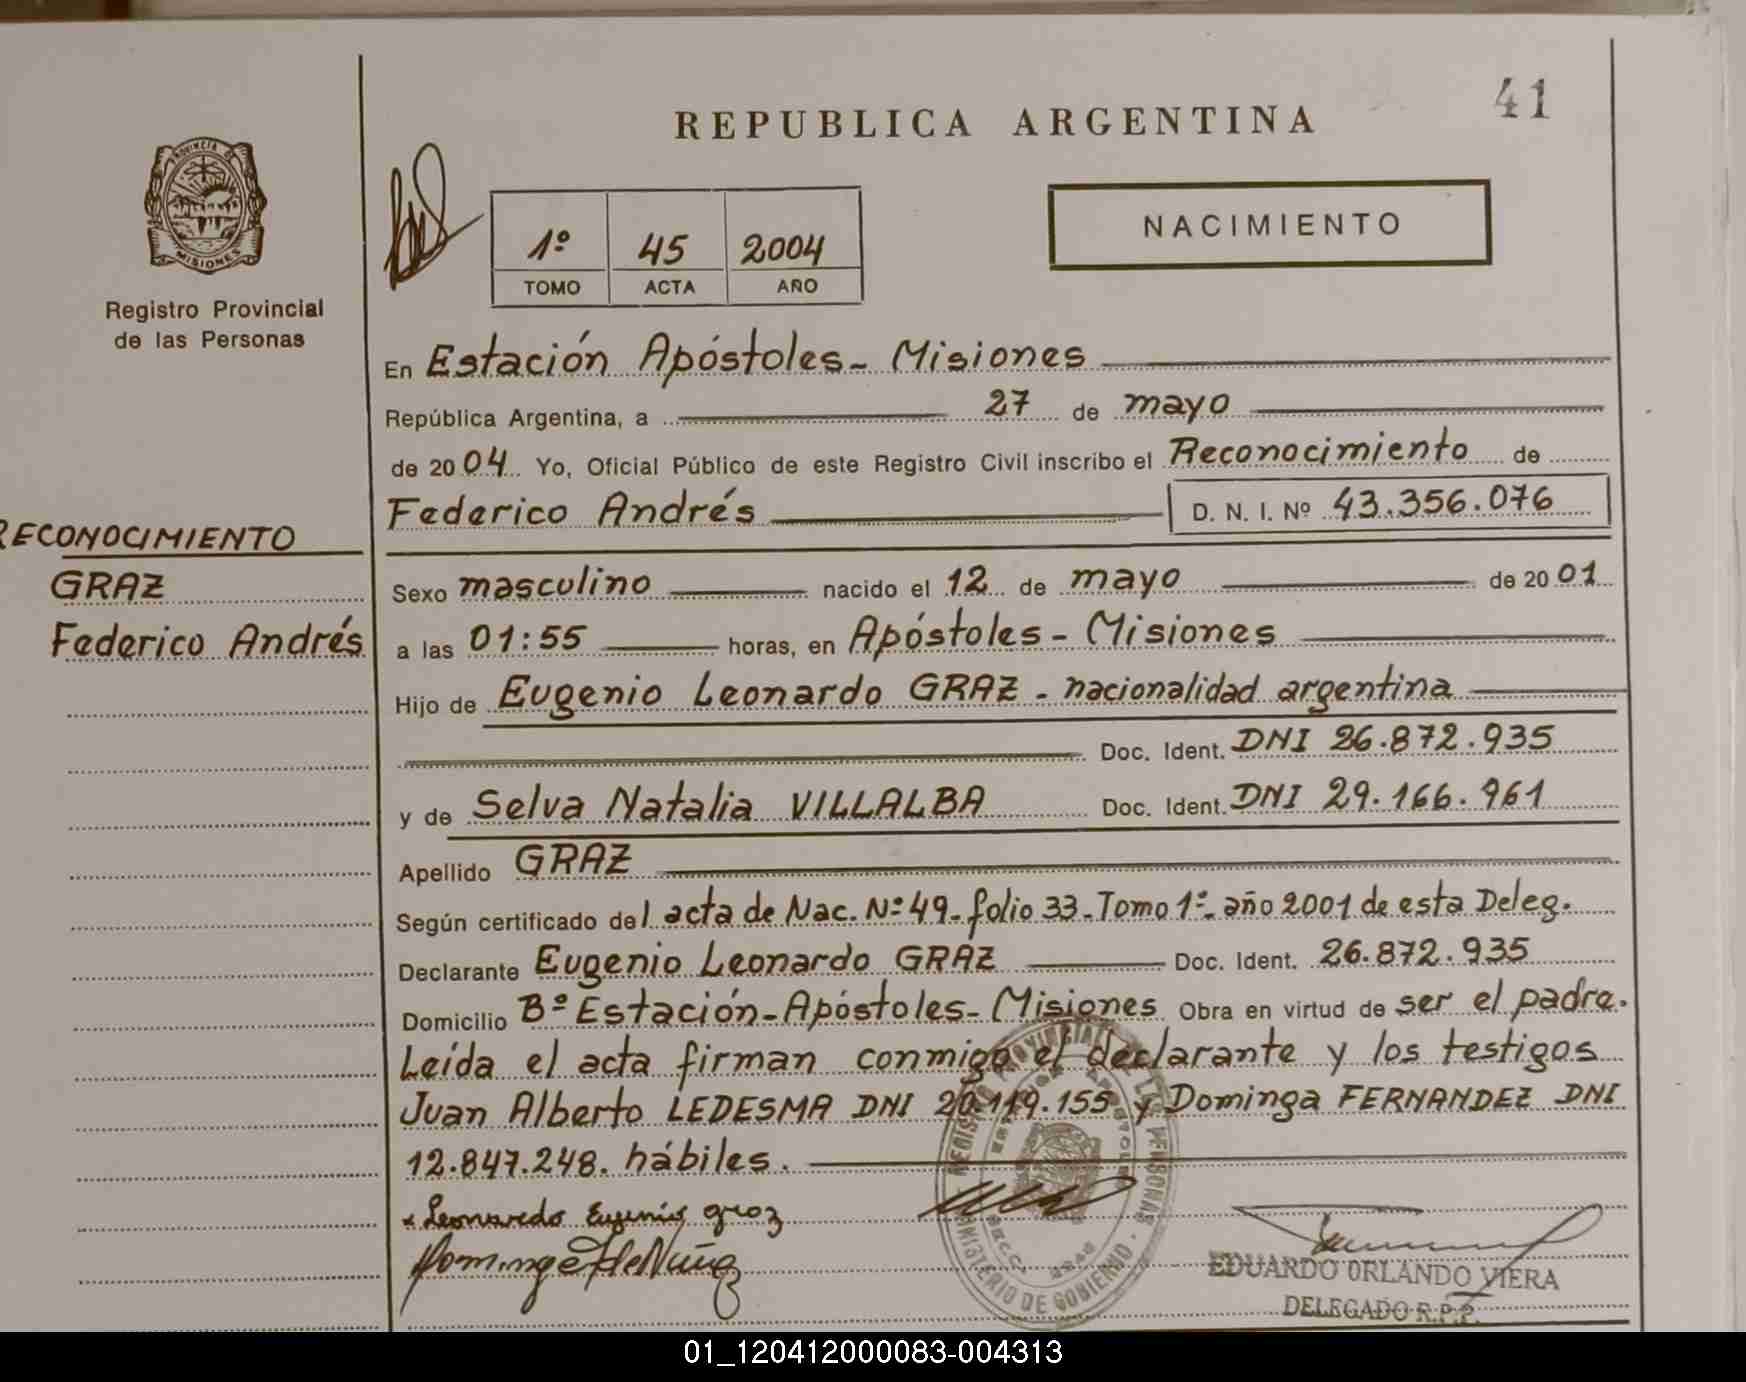 41
REPUBLICA ARGENTINA
PROVINCIA DE
MISIONES
Registro Provincial
de las Personas
1º 45 2004
TOMO ACTA AÑO
NACIMIENTO
En Estación Apóstoles - Misiones
República Argentina, a 27 de mayo
de 2004 Yo, Oficial Público de este Registro Civil inscribo el Reconocimiento de
Federico Andrés D. N. I. Nº 43.356.076
RECONOCIMIENTO
GRAZ
Federico Andrés
Sexo masculino nacido el 12 de mayo de 2001
a las 01:55 horas, en Apóstoles - Misiones
Hijo de Eugenio Leonardo GRAZ - nacionalidad argentina
Doc. Ident. DNI 26.872.935
y de Selva Natalia VILLALBA Doc. Ident. DNI 29.166.961
Apellido GRAZ
Según certificado del acta de Nac. Nº 49 - folio 33 - Tomo 1º - año 2001 de esta Deleg.
Declarante Eugenio Leonardo GRAZ Doc. Ident. 26.872.935
Domicilio Bº Estación - Apóstoles - Misiones Obra en virtud de ser el padre.
Leída el acta firman conmigo el declarante y los testigos
Juan Alberto LEDESMA DNI 20.119.155 y Dominga FERNANDEZ DNI
12.847.248. hábiles.
x Leonardo Eugenio graz
EDUARDO ORLANDO VIERA
DELEGADO R.P.P.
MINISTERIO DE GOBIERNO
01_120412000083-004313